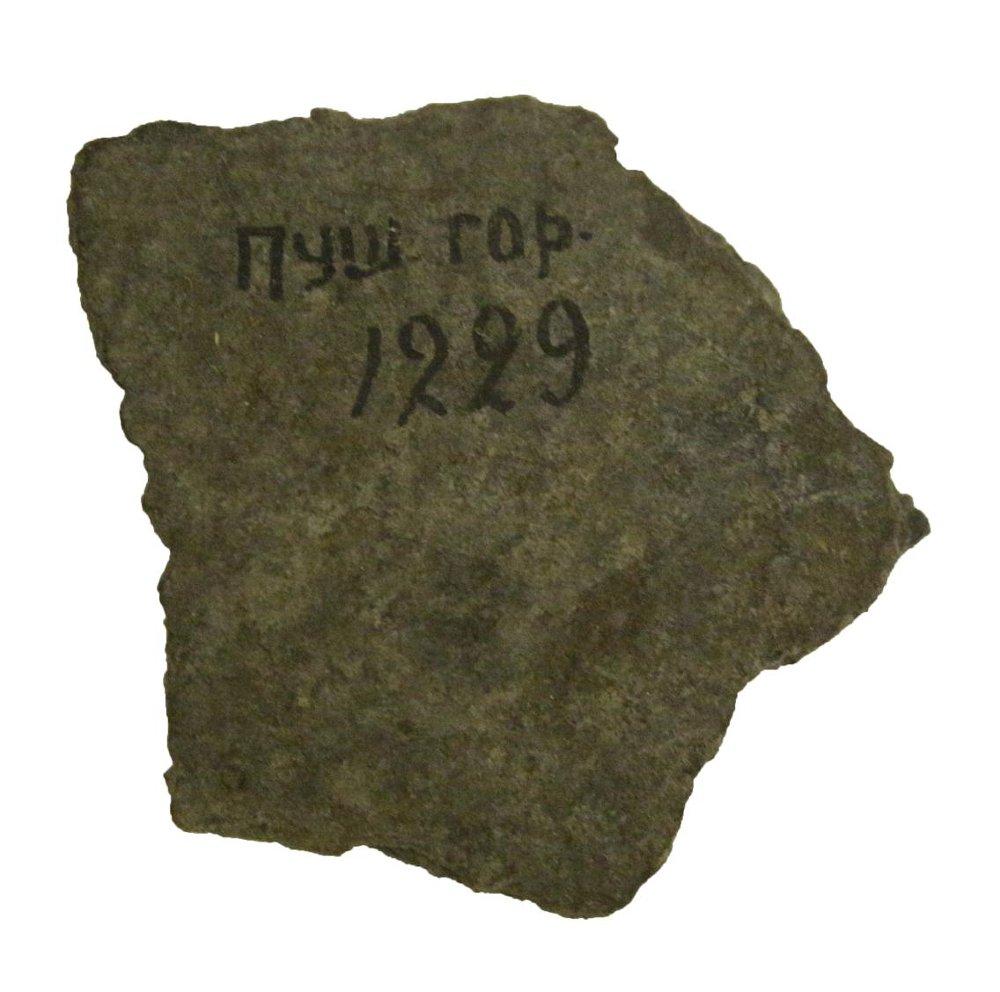 ПУШ ГОР.
1229